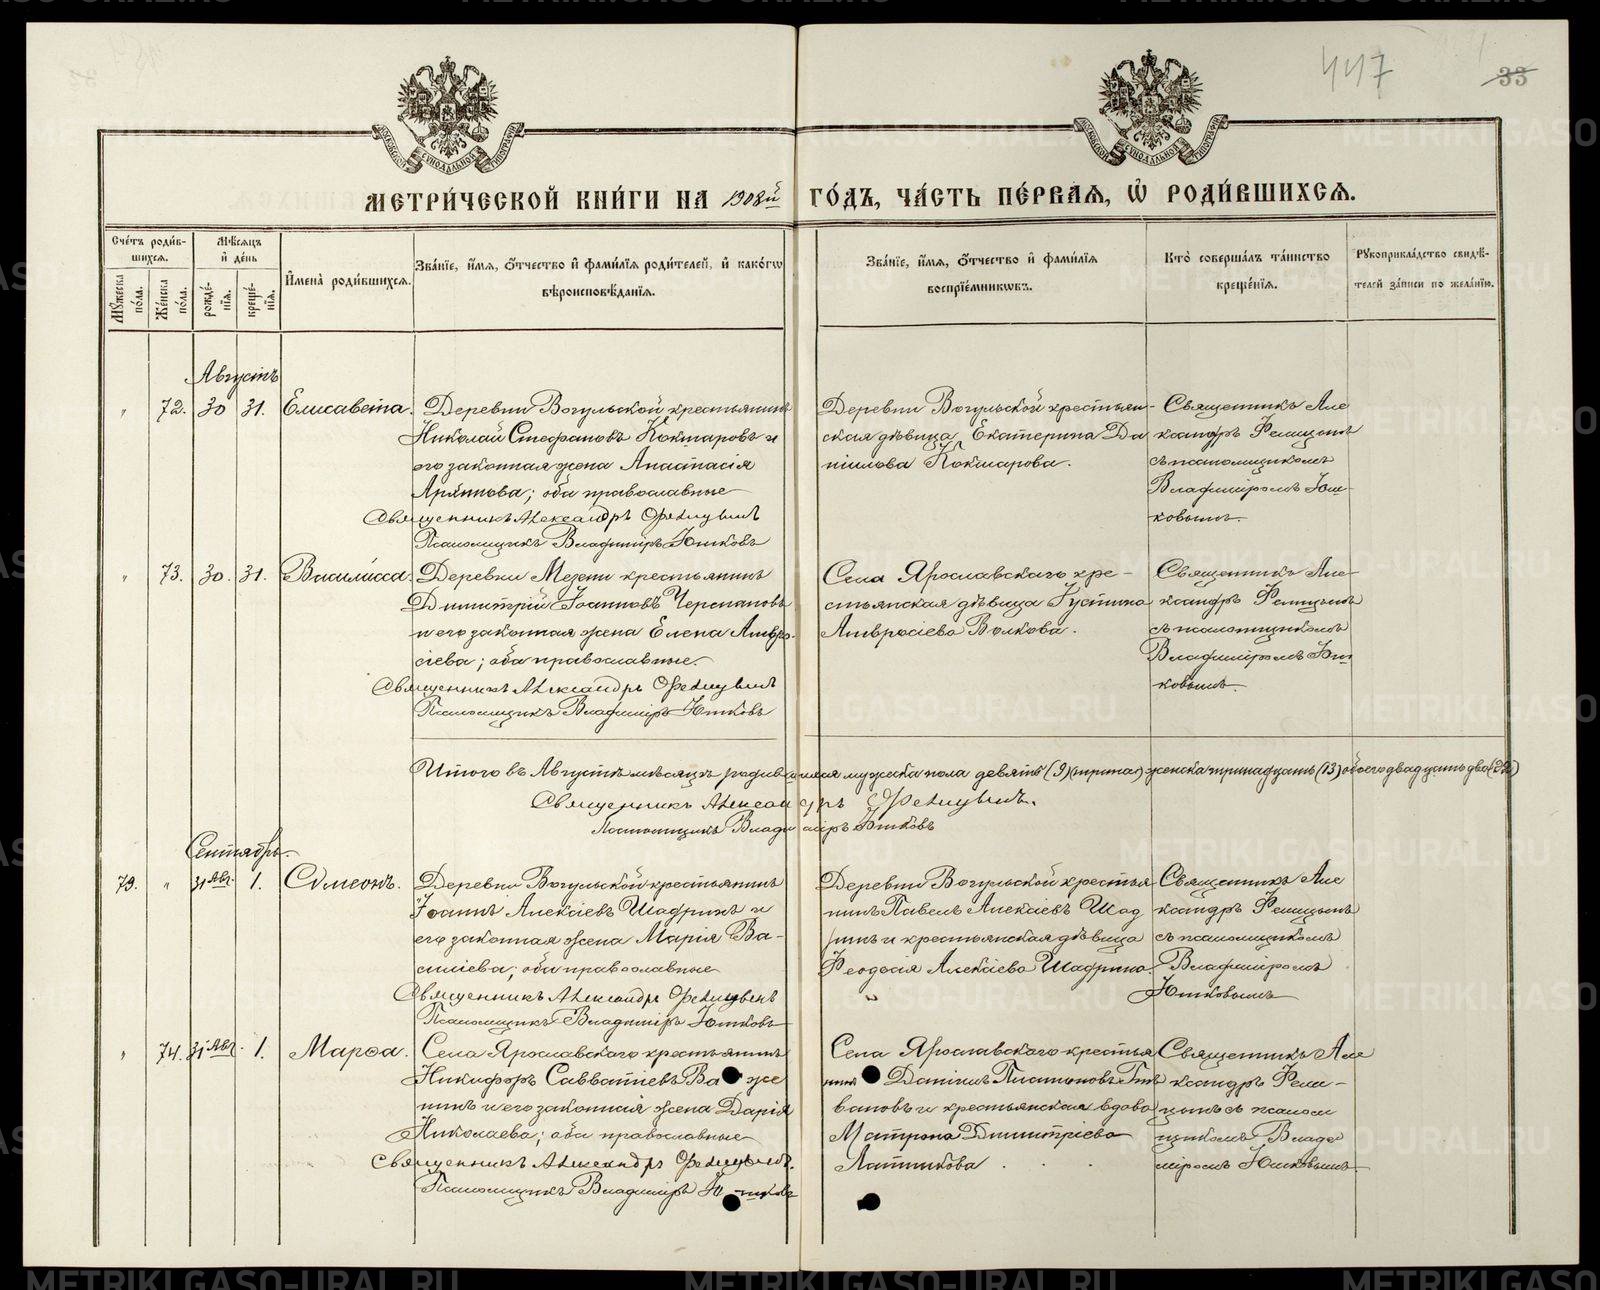 447
33
МЕТРИ́ЧЕСКОЙ КНИ́ГИ НА 1908й ГО́ДЪ, ЧА́СТЬ ПЕ́РВАѦ, Ѡ҆ РОДИ́ВШИХСѦ.
Сче́тъ роди́вшихсѧ.
Мꙋ́жеска по́ла.
Же́нска по́ла.
Мѣ́сѧцъ и҆ де́нь
рожде́нїѧ.
креще́нїѧ.
И҆мена̀ роди́вшихсѧ.
Зва́нїе, и҆́мѧ, ѻ҆́тчество и҆ фами́лїѧ роди́телей, и҆ како́гѡ
вѣроисповѣ́данїѧ.
Зва́нїе, и҆́мѧ, ѻ҆́тчество и҆ фами́лїѧ
воспрїе́мникѡвъ.
Кто̀ соверша́лъ та́инство
креще́нїѧ.
Рꙋкоприкла́дство свидѣ́-
телей за́писи по жела́нїю.
Августъ
" 72. 30 31. Елисавета.
Деревни Вогульской крестьянинъ
Николай Стефановъ Кокшаровъ и
его законная жена Анастасія
; оба православные
Священникъ Александръ Фелицынъ
Псаломщикъ Владиміръ Юшковъ
Деревни Вогульской крестьян-
ская дѣвица Екатерина Да
ніилова Кокшарова.
Священникъ Але
ксандръ Фелицынъ
съ псаломщикомъ
Владиміромъ Юш-
ковымъ.
" 73. 30. 31. Василисса.
Деревни Мезени крестьянинъ
Димитрій Іоанновъ Черепановъ
и его законная жена Елена Амвро-
сіева; оба православные.
Священникъ Александръ Фелицынъ
Псаломщикъ Владиміръ Юшковъ
Села Ярославскаго кре-
стьянская дѣвица Іустина
Амвросіева Волкова.
Священникъ Але-
ксандръ Фелицынъ
съ псаломщикомъ
Владиміромъ Юш
ковымъ.
Итого въ Августѣ мѣсяцѣ родившихся мужска пола девять (9) женска тринадцать (13) обоего двадцать два (22)
Священникъ Александръ Фелицынъ.
Псаломщикъ Владиміръ Юшковъ
Сентябрь.
79. " 31 Авг. 1. Сѵмеонъ.
Деревни Вогульской крестьянинъ
Іоаннъ Алексіевъ Шадринъ и
его законная жена Марія Ва-
силіева; оба православные
Священникъ Александръ Фелицынъ
Псаломщикъ Владиміръ Юшковъ
Деревни Вогульской крестья
нинъ Павелъ Алексіевъ Шад
ринъ и крестьянская дѣвица
Феодосія Алексіева Шадрина.
Священникъ Але
ксандръ Фелицынъ
съ псаломщикомъ
Владиміромъ
Юшковымъ
" 74. 31 Авг. 1. Марѳа.
Села Ярославскаго крестьянинъ
Никифоръ Савватіевъ Ва же
нинъ и его законная жена Дарія
Николаева; оба православные
Священникъ Александръ Фелицынъ.
Псаломщикъ Владиміръ Юшковъ
Села Ярославскаго крестья
нинъ Даніилъ
и крестьянская вдова
Матрона Димитріева
Лапшикова
Священникъ Але
ксандръ Фели-
цынъ съ псалом
щикомъ Влади
міромъ Юшковымъ.
METRIKI.GASO-URAL.RU